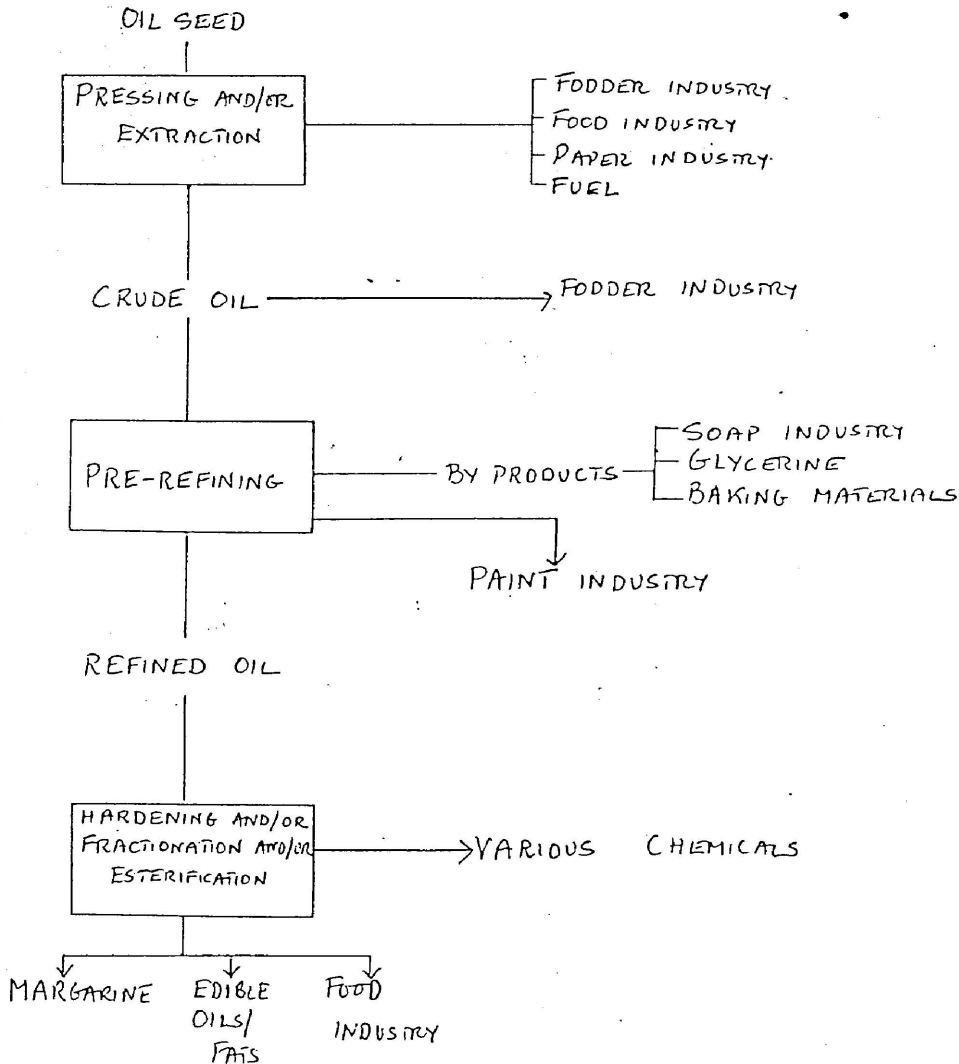 OIL SEED
PRESSING AND/OR
EXTRACTION
FODDER INDUSTRY
FOOD INDUSTRY
PAPER INDUSTRY
FUEL
CRUDE OIL
FODDER INDUSTRY
PRE-REFINING
BY PRODUCTS
SOAP INDUSTRY
GLYCERINE
BAKING MATERIALS
PAINT INDUSTRY
REFINED OIL
HARDENING AND/OR
FRACTIONATION AND/OR
ESTERIFICATION
VARIOUS CHEMICALS
MARGARINE
EDIBLE
OILS/
FATS
FOOD
INDUSTRY